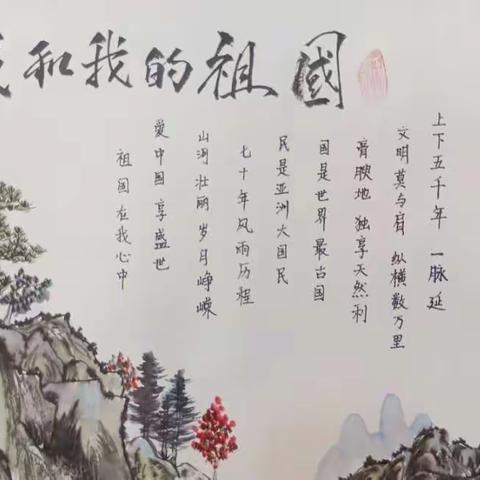 我和我的祖國
上下五千年 一脉延
文明莫与肩 纵横数万里
膏腴地 独享天然利
国是世界最古国
民是亚洲大国民
七十年风雨历程
山河壮丽 岁月峥嵘
爱中国 享盛世
祖国在我心中